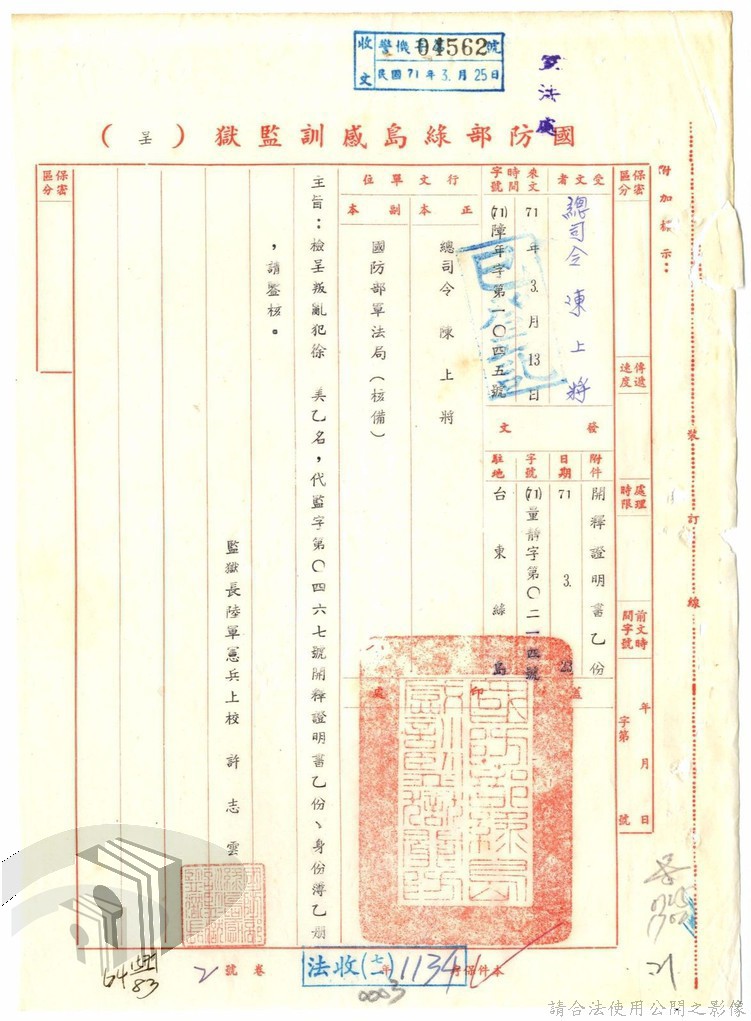 收文
警機
04562號
民國71年3.月25日
軍法處
國防部綠島感訓監獄（呈）
附加標示：
裝訂線
保密區分
傳遞速度
處理時限
前文時間字號
年月日
字第號
受文者
總司令陳上將
來文時間字號
71年3.月13日
(71)障年字第一〇四五號
已登記
發文
附件
開釋證明書乙份
日期
71 3. 23
字號
(71)量靜字第〇二一四號
駐地
台東綠島
蓋印處
國防部綠島感訓監獄關防
行文單位
正本
總司令陳上將
副本
國防部軍法局（核備）
主旨：檢呈叛亂犯徐 美乙名，代監字第〇四六七號開釋證明書乙份、身份簿乙冊
，請鑒核。
監獄長陸軍憲兵上校許志雲
保密區分
本件保存 年
法收(七一)1134
0003
卷號
2
64
83
21
請合法使用公開之影像